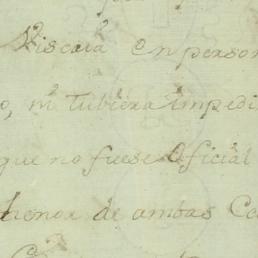 Viscaia en person
o, ni tubiera impedi
que no fuese Oficial
menor de ambas Ca